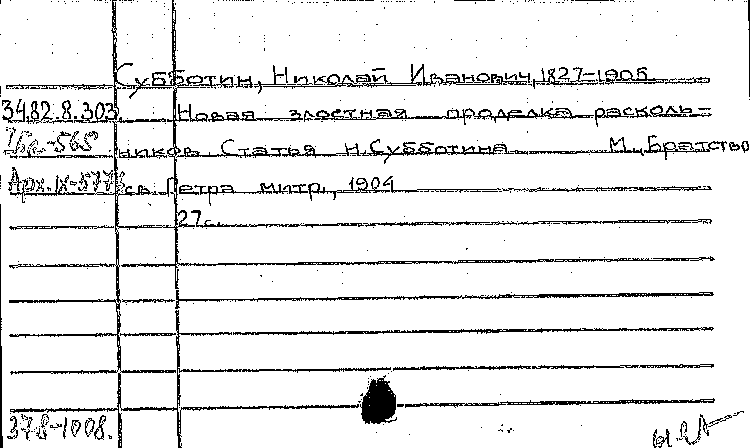 Субботин, Николай Иванович, 1827-1905
34.82.8.303 Новая злостная проделка расколь-
Iбр.-565 ников Статья Н.Субботина М., Братство
Арх.IX-577 св. Петра митр., 1904
27с.
378-1008.